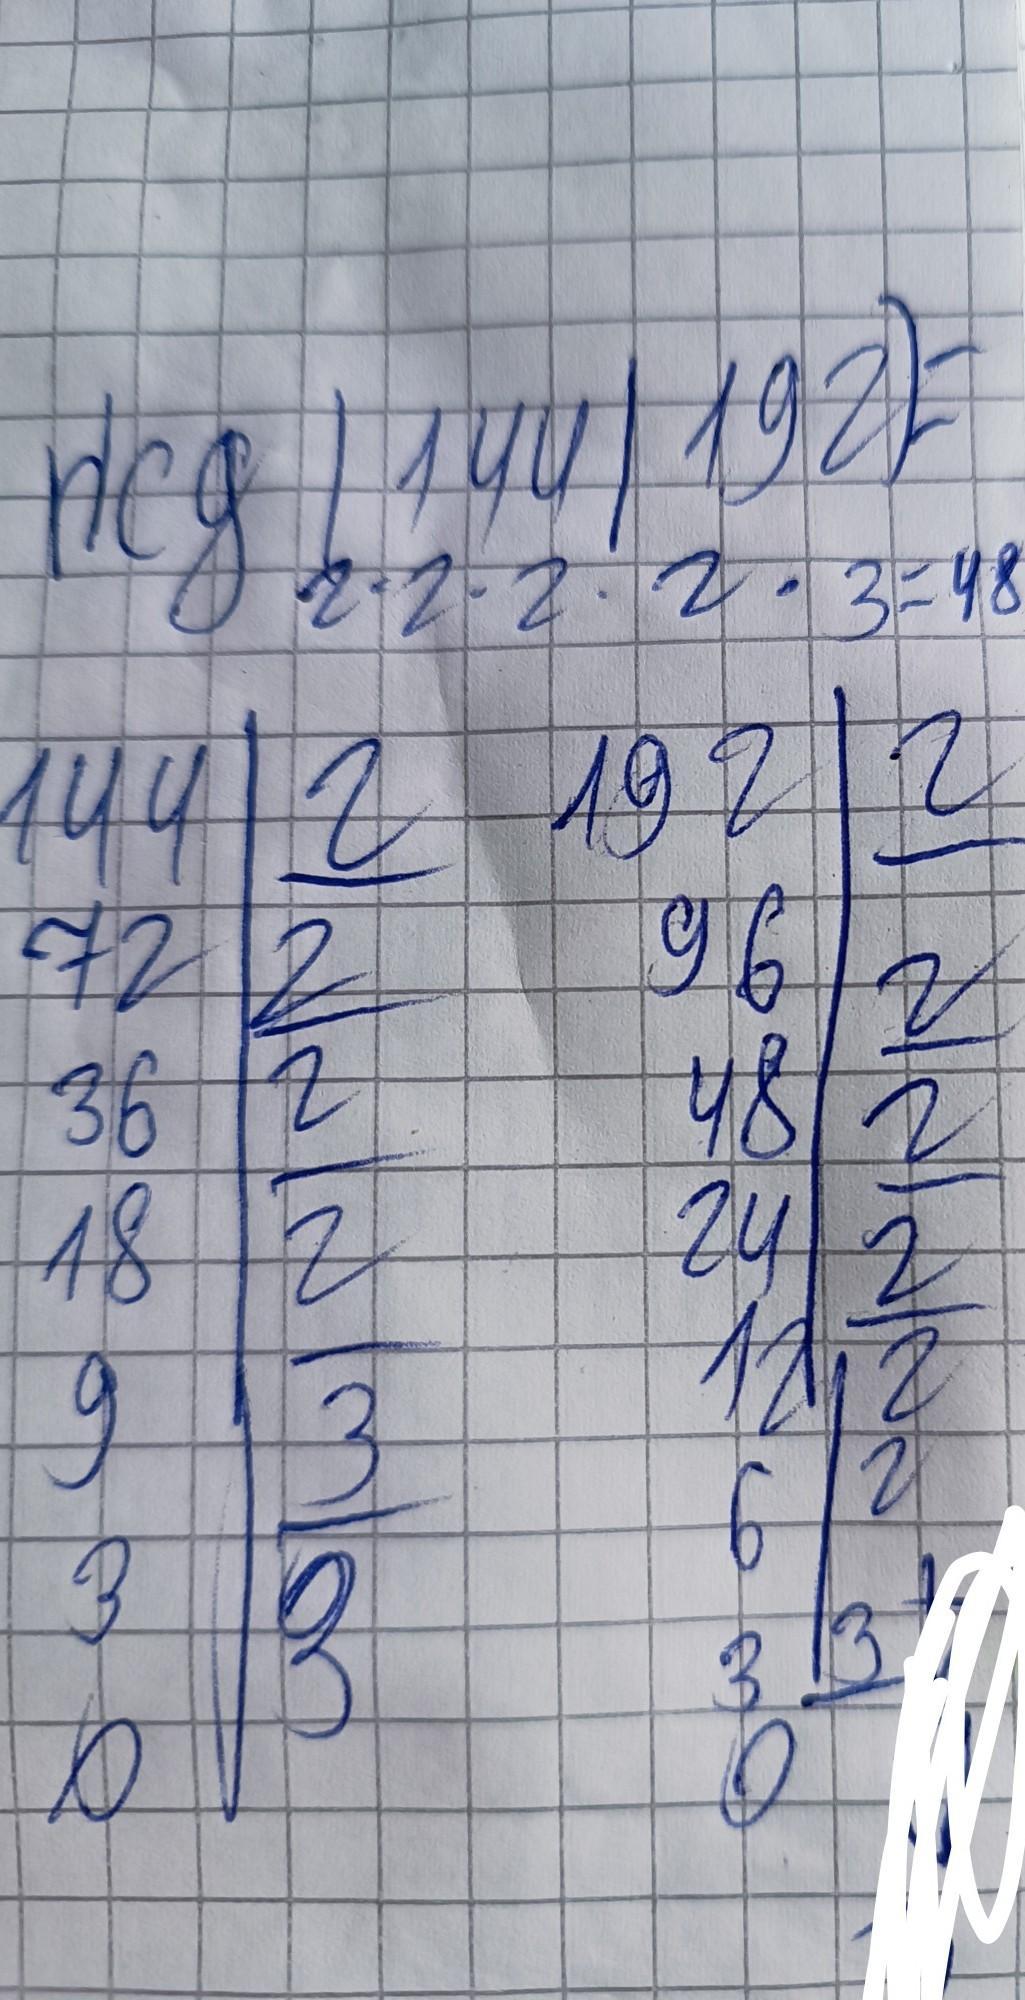 НСД (144, 192) =
2·2·2·2·3=48
144 | 2 192 | 2
72 | 2 96 | 2
36 | 2 48 | 2
18 | 2 24 | 2
9 | 3 12 | 2
3 | 3 6 | 2
0 3 | 3
0